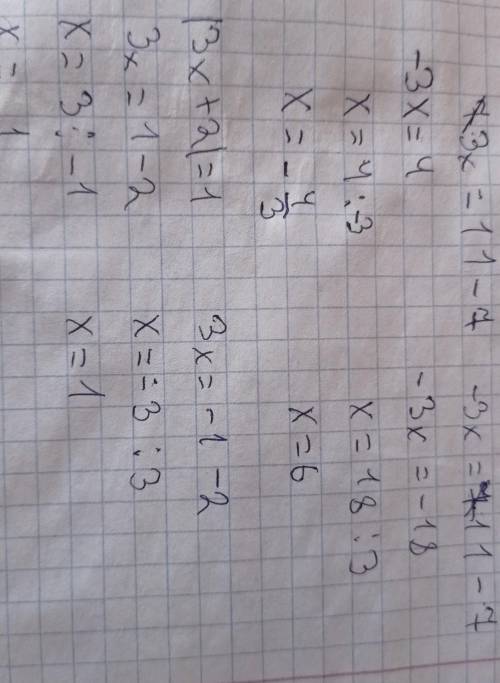 -3x = 11 - 7    -3x = -11 - 7
-3x = 4    -3x = -18
x = 4 : -3    x = 18 : 3
x = - 4/3    x = 6
|3x + 2| = 1    3x = -1 - 2
3x = 1 - 2    x = -3 : 3
x = 3 : -1    x = 1
x =